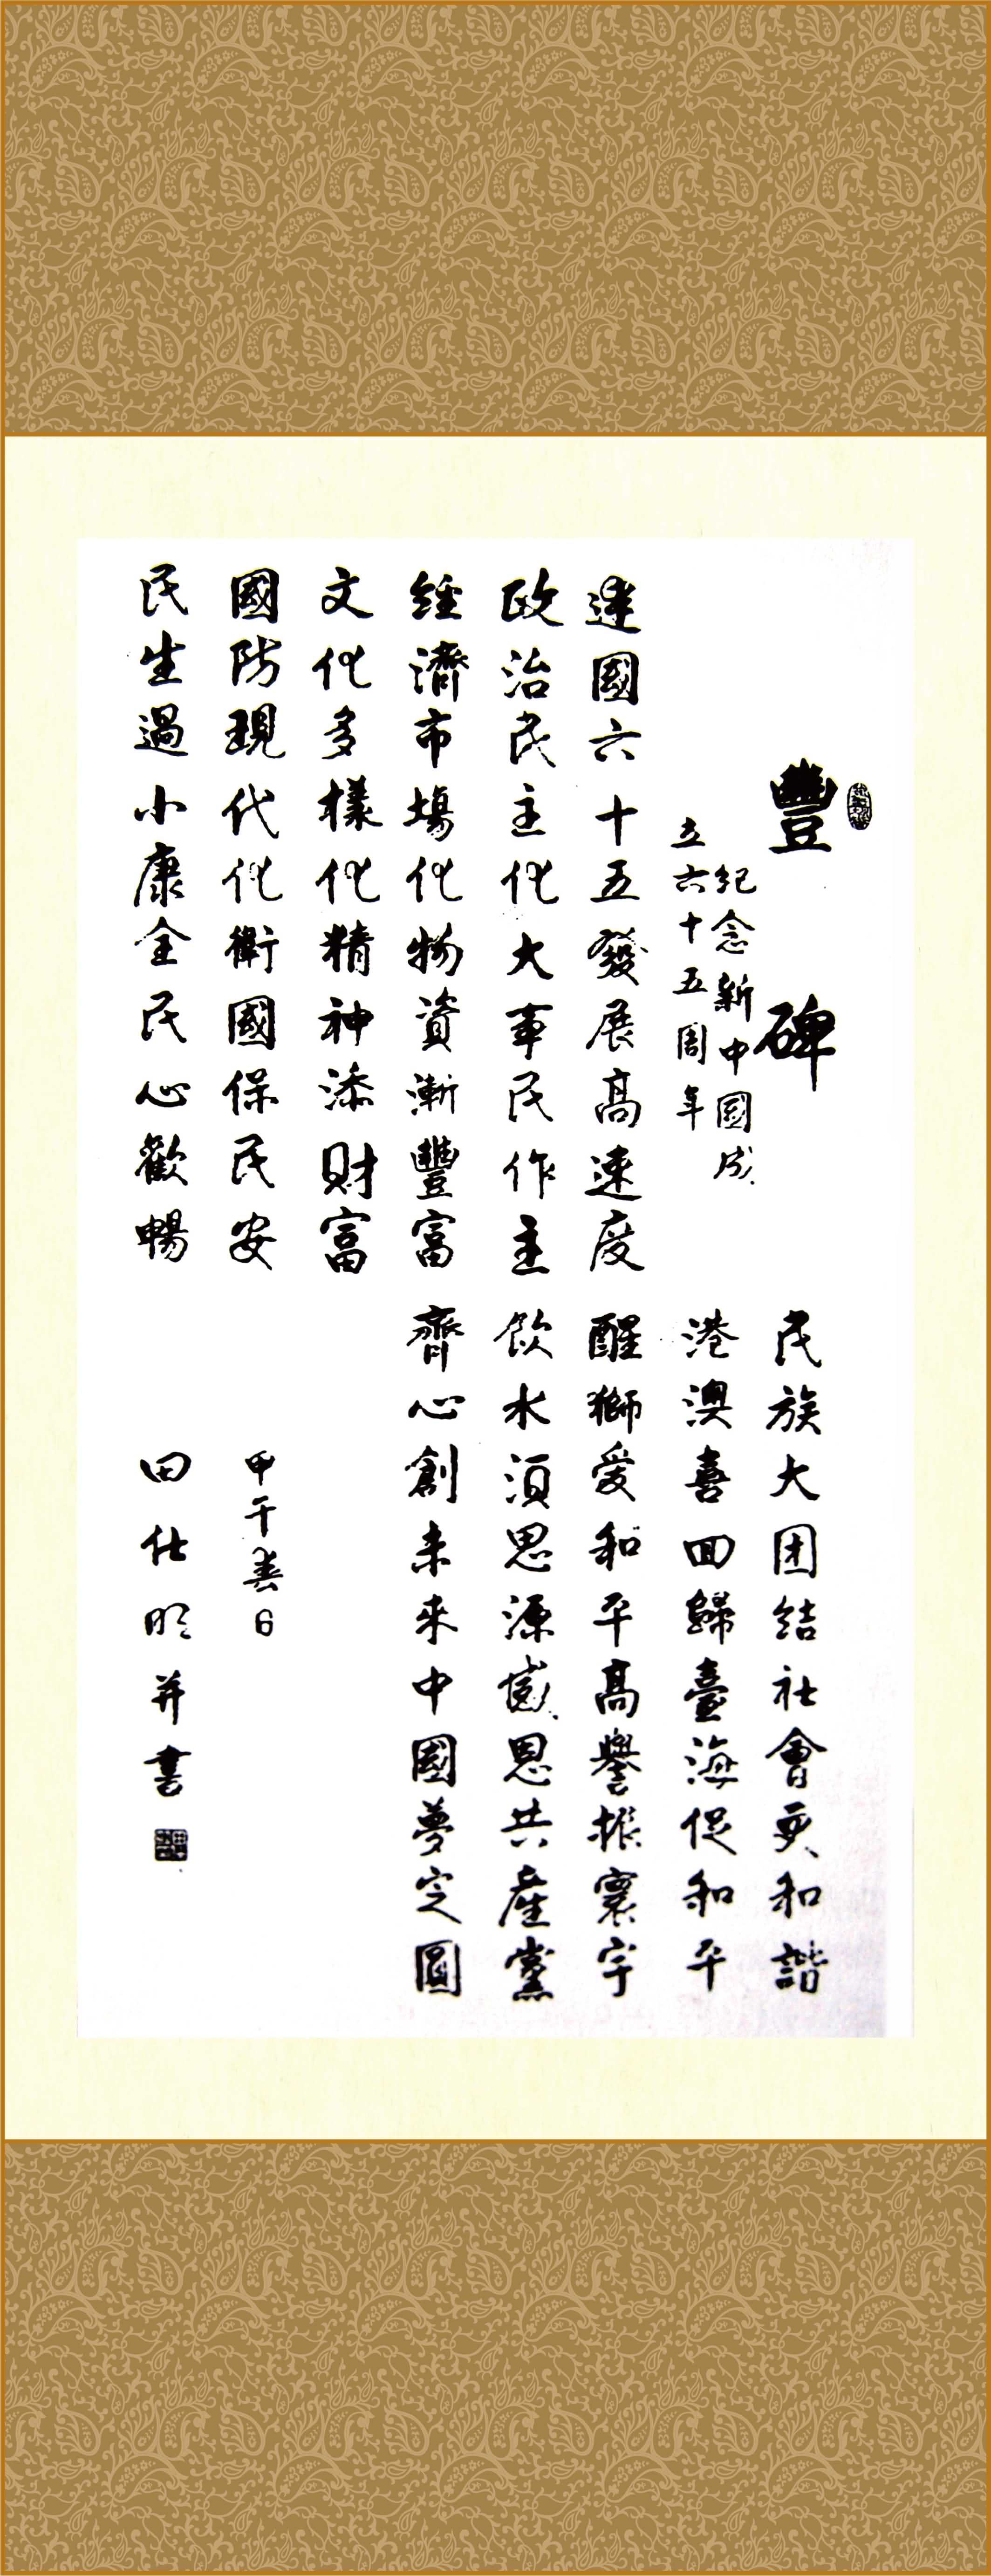 豐碑
紀念新中國成
立六十五周年
建國六十五發展高速度
政治民主化大事民作主
經濟市場化物資漸豐富
文化多樣化精神添財富
國防現代化衛國保民安
民生過小康全民心歡暢
民族大团結社會更和諧
港澳喜回歸臺海促和平
醒獅爱和平高譽振寰宇
飲水須思源感恩共產黨
齊心創未來中國夢定圓
甲午春日
田仕明并書